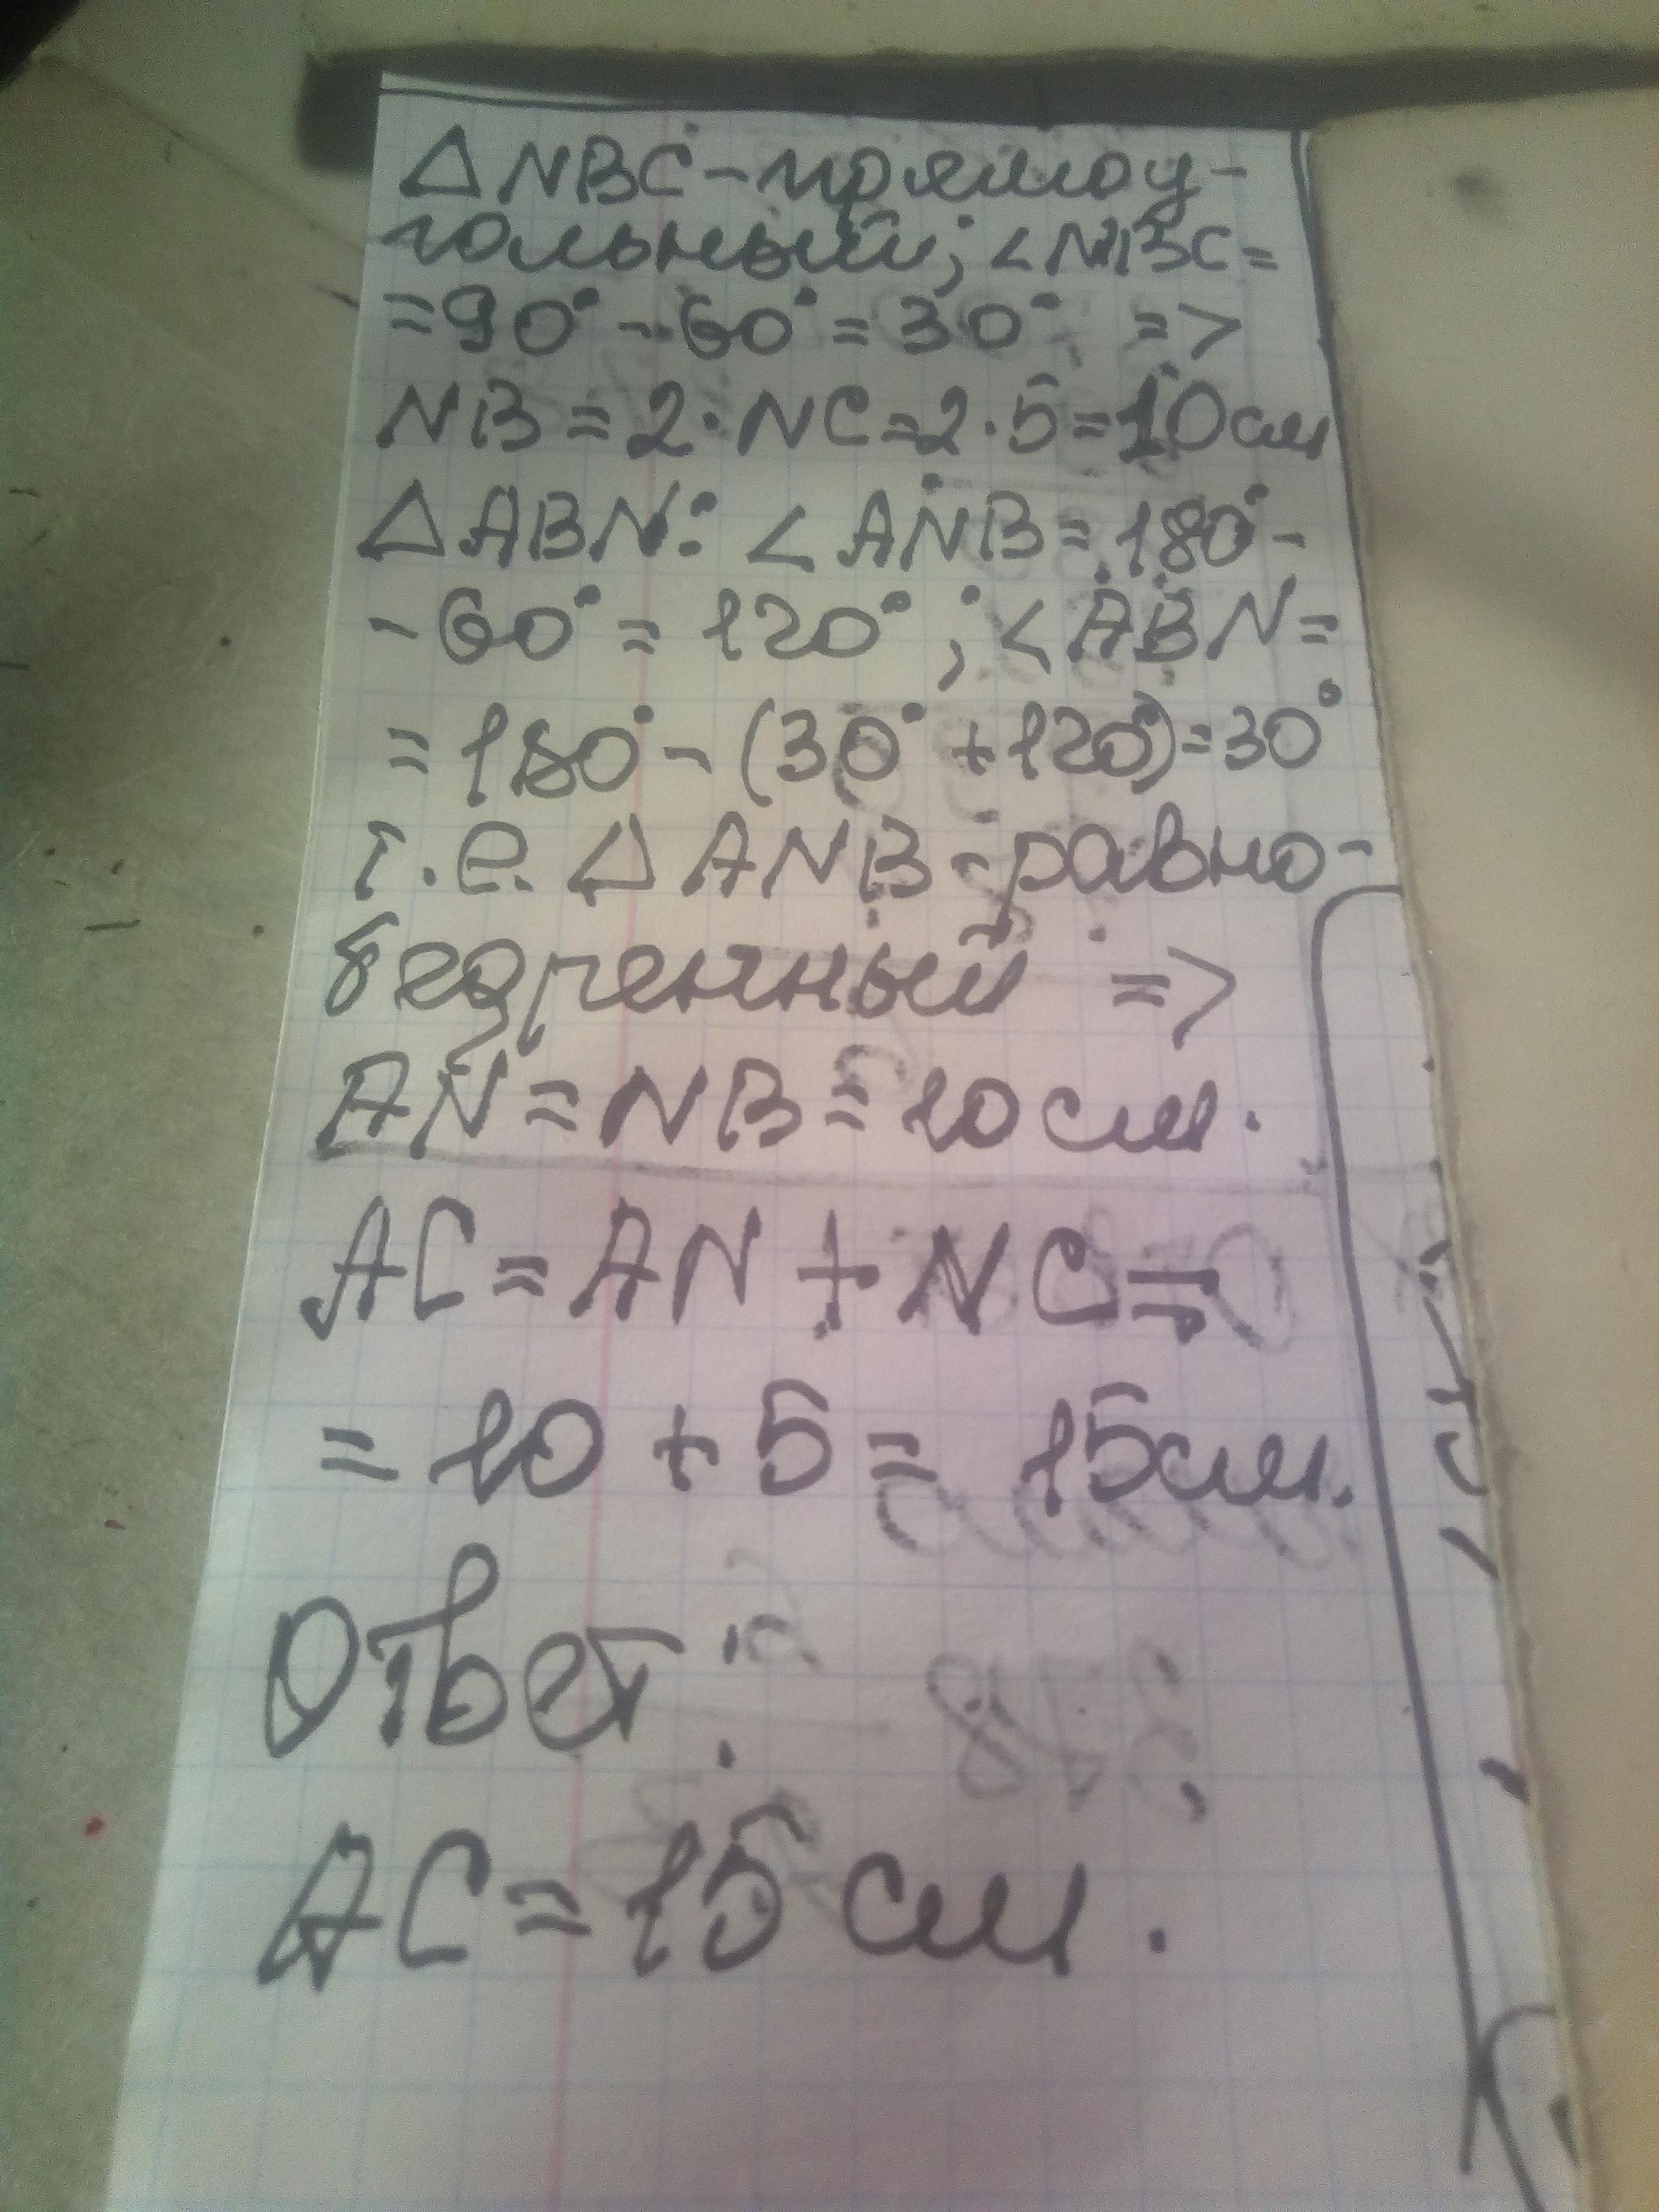 △NBC-прямоу-
гольный; <NBC=
=90°-60°=30° =>
NB=2·NC=2·5=10см
△ABN: <ANB=180°-
-60°=120°; <ABN=
=180°-(30°+120°)=30°
т.е. △ANB-равно-
бедренный =>
AN=NB=10см.
AC=AN+NC=
=10+5=15см.
Ответ:
AC=15см.